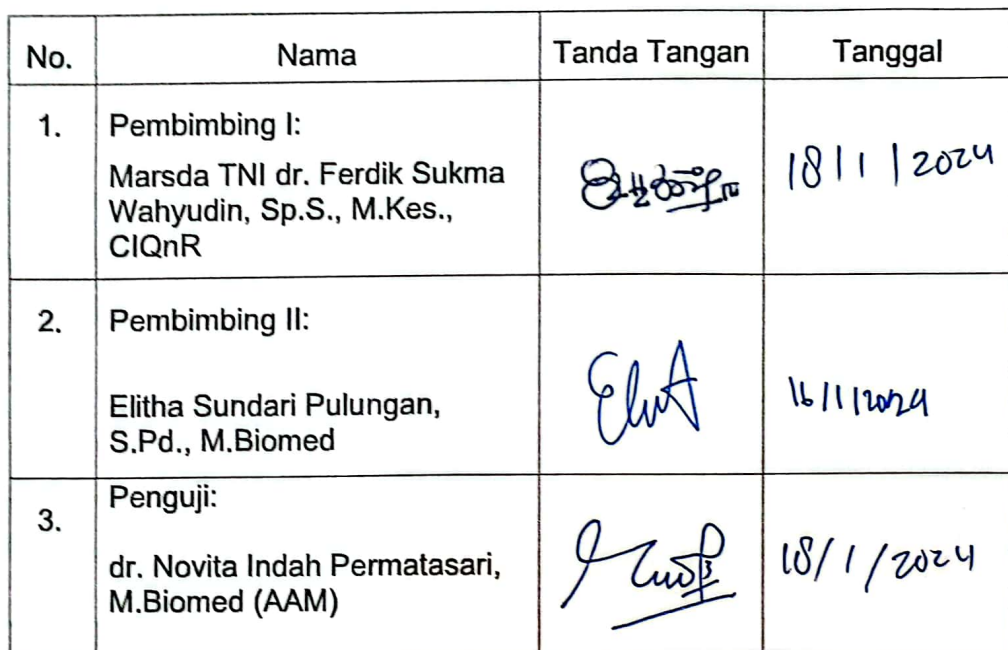 No. Nama Tanda Tangan Tanggal
1. Pembimbing I:
Marsda TNI dr. Ferdik Sukma
Wahyudin, Sp.S., M.Kes.,
CIQnR
18/1/2024
2. Pembimbing II:
Elitha Sundari Pulungan,
S.Pd., M.Biomed
16/1/2024
3. Penguji:
dr. Novita Indah Permatasari,
M.Biomed (AAM)
18/1/2024